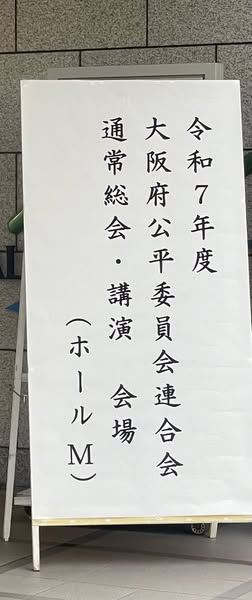 令和7年度
大阪府公平委員会連合会
通常総会・講演 会場
（ホールM）